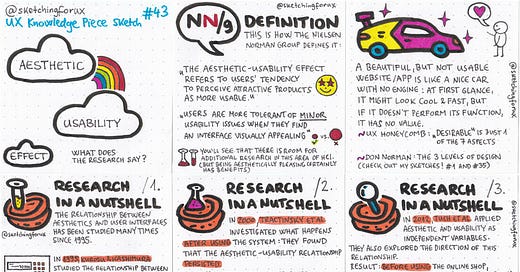 @sketchingforux
UX Knowledge Piece Sketch #43
AESTHETIC
USABILITY
EFFECT
WHAT DOES
THE RESEARCH SAY?
RESEARCH /1.
IN A NUTSHELL
THE RELATIONSHIP
BETWEEN
AESTHETICS AND USER INTERFACES
HAS BEEN STUDIED MANY TIMES
SINCE 1995.
@sketchingforux
IN 1995, KUROSU & KASHIMURA
STUDIED THE RELATIONSHIP BETWEEN
NN/g DEFINITION
THIS IS HOW THE NIELSEN
NORMAN GROUP DEFINES IT:
"THE AESTHETIC-USABILITY EFFECT
REFERS TO USERS' TENDENCY
TO PERCEIVE ATTRACTIVE PRODUCTS
AS MORE USABLE."
"USERS ARE MORE TOLERANT OF MINOR
USABILITY ISSUES WHEN THEY FIND
AN INTERFACE VISUALLY APPEALING"
VS.
YOU'LL SEE THAT THERE IS ROOM FOR
ADDITIONAL RESEARCH IN THIS AREA OF HCI.
(BUT BEING AESTHETICALLY PLEASING CERTAINLY
HAS BENEFITS)
RESEARCH /2.
IN A NUTSHELL
IN 2000 TRACTINSKY ET AL.
INVESTIGATED WHAT HAPPENS
AFTER USING THE SYSTEM: THEY FOUND
THAT THE AESTHETIC-USABILITY RELATIONSHIP
PERSISTED.
@sketchingforux
A BEAUTIFUL, BUT NOT USABLE
WEBSITE/APP IS LIKE A NICE CAR
WITH NO ENGINE: AT FIRST GLANCE,
IT MIGHT LOOK COOL & FAST, BUT
IF IT DOESN'T PERFORM ITS FUNCTION,
IT HAS NO VALUE.
~UX HONEYCOMB: "DESIRABLE" IS JUST 1
OF THE 7 ASPECTS
~DON NORMAN: THE 3 LEVELS OF DESIGN
(CHECK OUT MY SKETCHES! #1 AND #35)
RESEARCH /3.
IN A NUTSHELL
IN 2012, TUCH ET AL. APPLIED
AESTHETIC AND USABILITY AS
INDEPENDENT VARIABLES.
THEY ALSO EXPLORED THE DIRECTION OF THIS
RELATIONSHIP.
RESULT: BEFORE USING THE ONLINE SHOP,
@sketchingforux